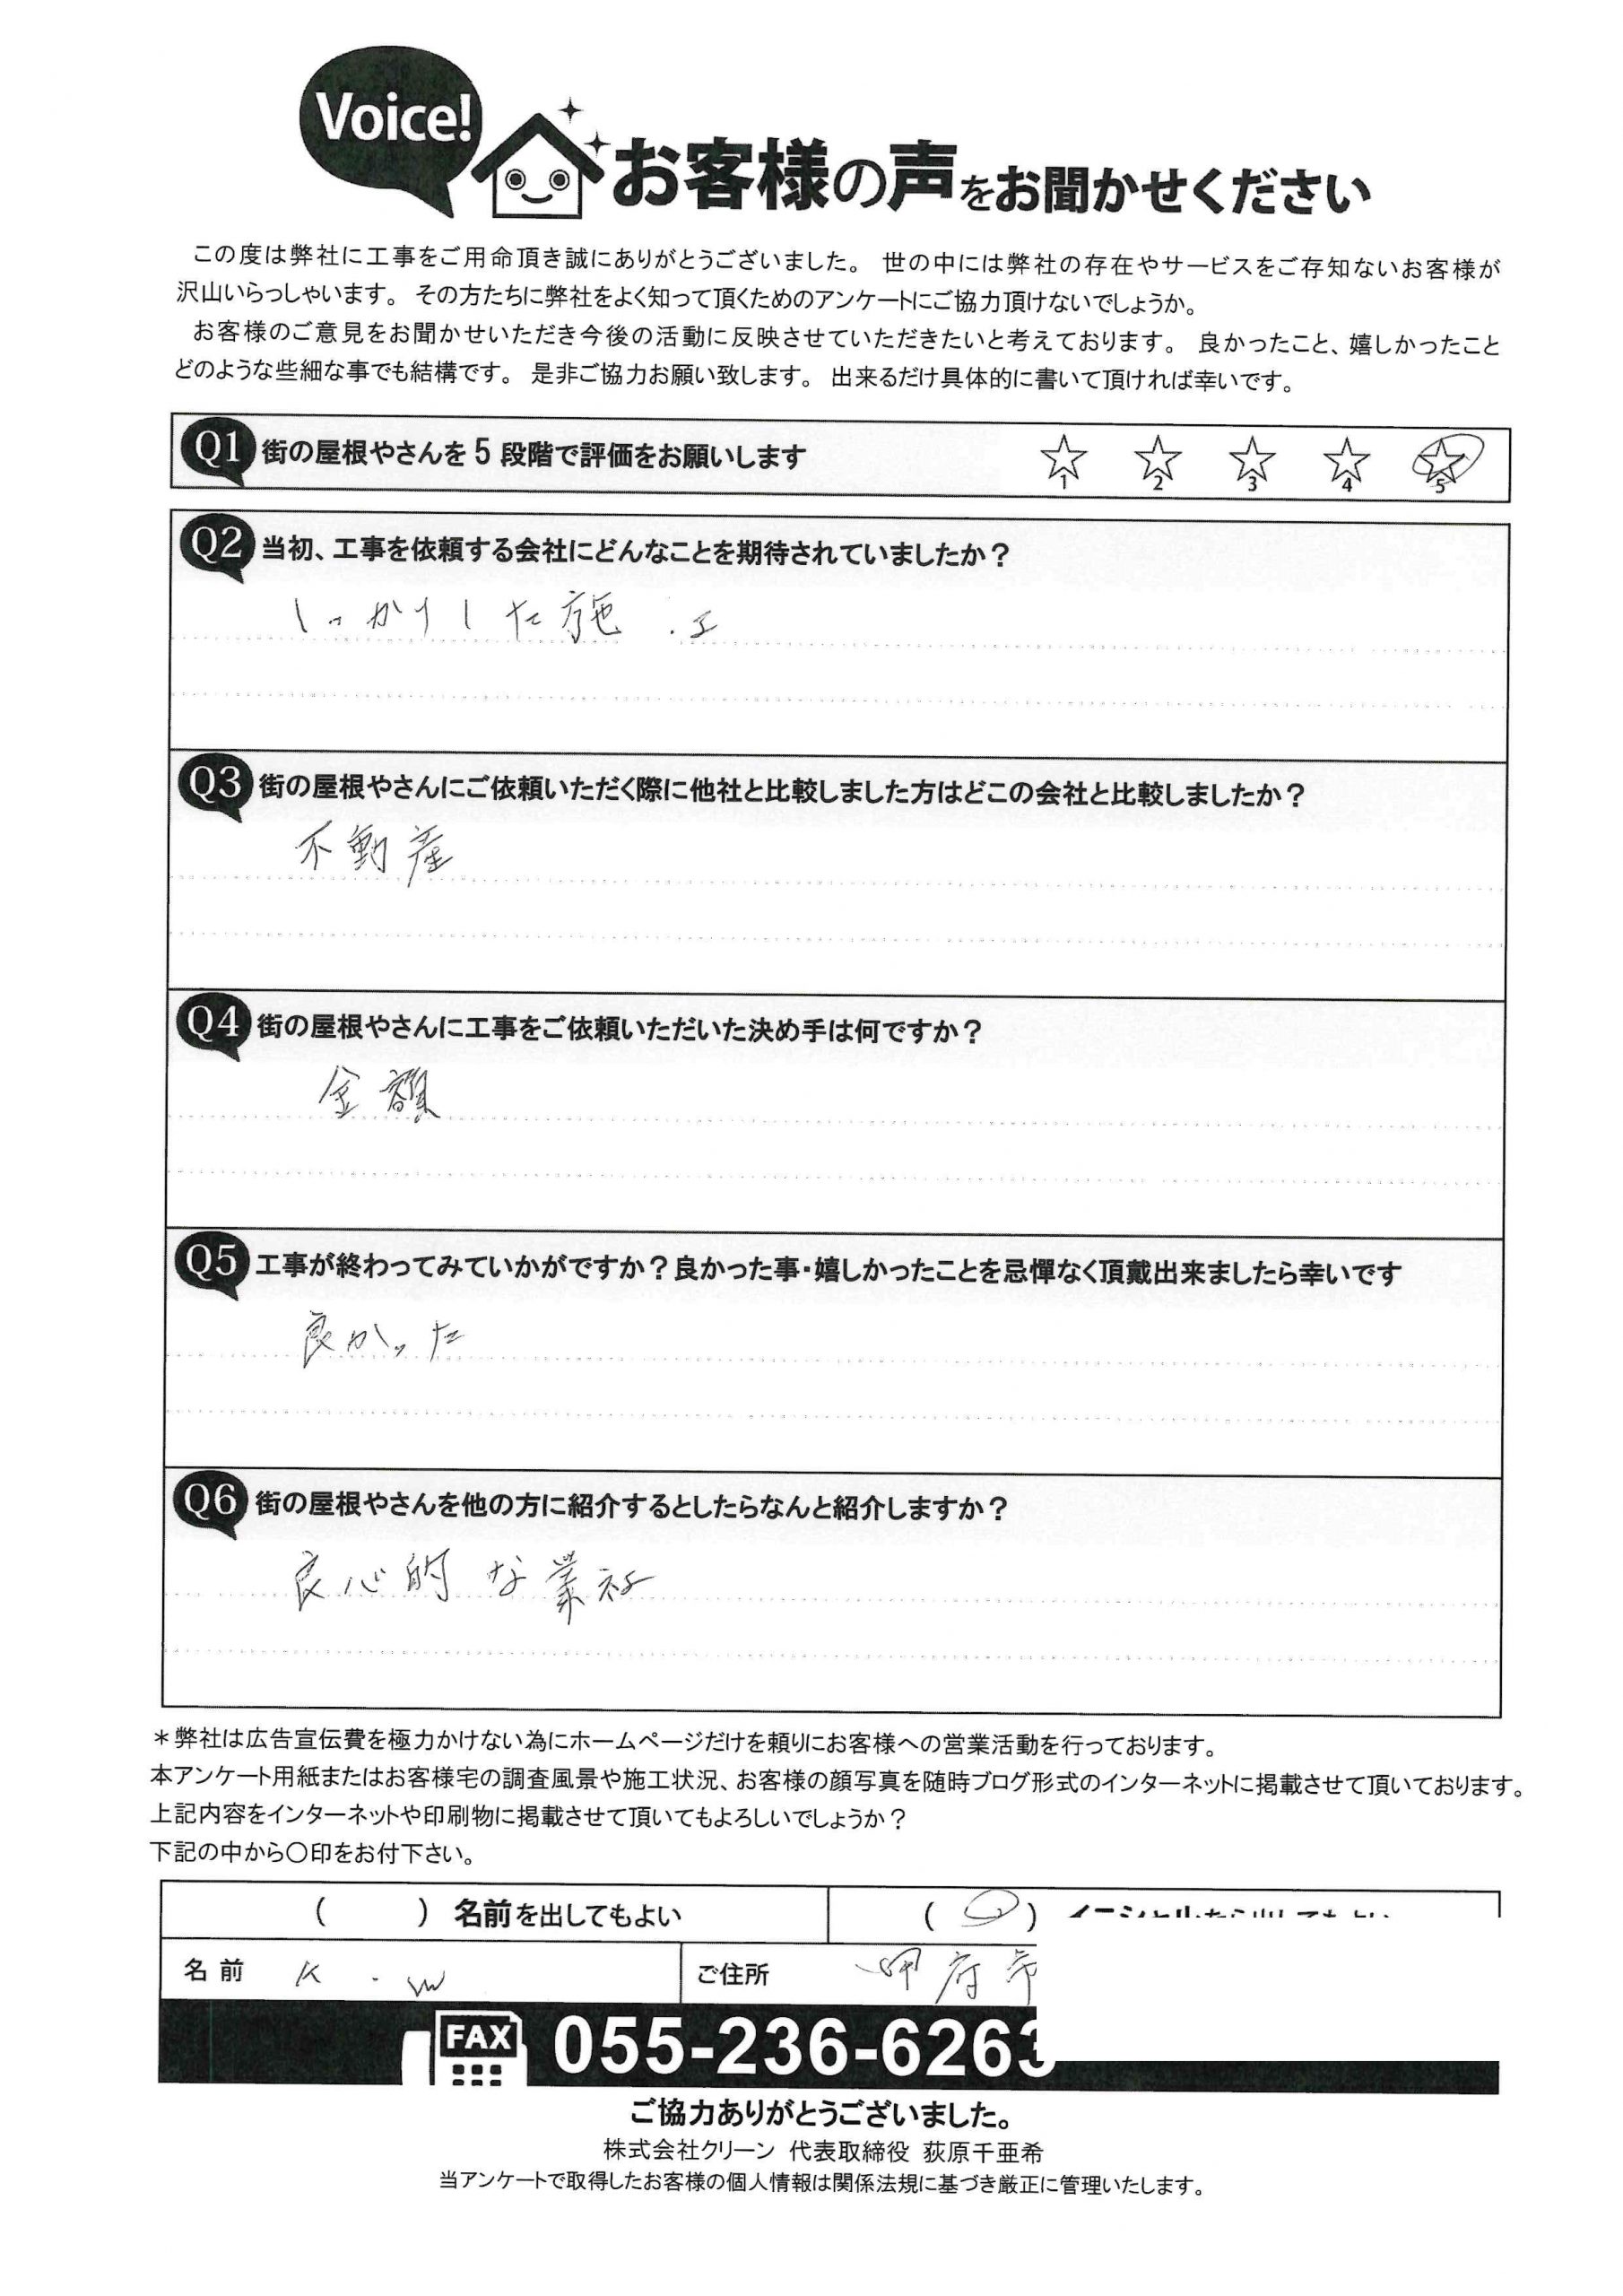 Voice!
お客様の声をお聞かせください
この度は弊社に工事をご用命頂き誠にありがとうございました。 世の中には弊社の存在やサービスをご存知ないお客様が
沢山いらっしゃいます。 その方たちに弊社をよく知って頂くためのアンケートにご協力頂けないでしょうか。
お客様のご意見をお聞かせいただき今後の活動に反映させていただきたいと考えております。 良かったこと、嬉しかったこと
どのような些細な事でも結構です。 是非ご協力お願い致します。 出来るだけ具体的に書いて頂ければ幸いです。
Q1 街の屋根やさんを5段階で評価をお願いします 1 2 3 4 5
Q2 当初、工事を依頼する会社にどんなことを期待されていましたか？
しっかりした施工
Q3 街の屋根やさんにご依頼いただく際に他社と比較しました方はどこの会社と比較しましたか？
不動産
Q4 街の屋根やさんに工事をご依頼いただいた決め手は何ですか？
金額
Q5 工事が終わってみていかがですか？良かった事・嬉しかったことを忌憚なく頂戴出来ましたら幸いです
良かった
Q6 街の屋根やさんを他の方に紹介するとしたらなんと紹介しますか？
良心的な業社
＊弊社は広告宣伝費を極力かけない為にホームページだけを頼りにお客様への営業活動を行っております。
本アンケート用紙またはお客様宅の調査風景や施工状況、お客様の顔写真を随時ブログ形式のインターネットに掲載させて頂いております。
上記内容をインターネットや印刷物に掲載させて頂いてもよろしいでしょうか？
下記の中から〇印をお付下さい。
（　　）名前を出してもよい （〇）
名前 K.W ご住所 甲府市
FAX 055-236-6263
ご協力ありがとうございました。
株式会社クリーン 代表取締役 荻原千亜希
当アンケートで取得したお客様の個人情報は関係法規に基づき厳正に管理いたします。